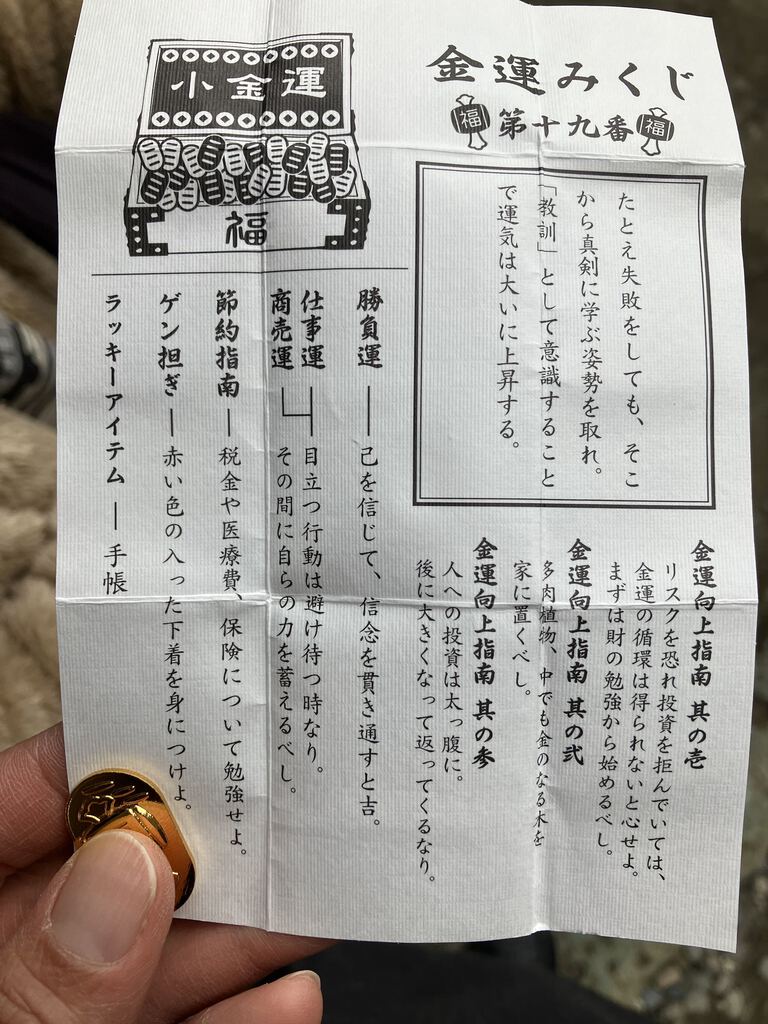 金運みくじ
福 第十九番 福
たとえ失敗をしても、そこ
から真剣に学ぶ姿勢を取れ。
「教訓」として意識すること
で運気は大いに上昇する。
金運向上指南 其の壱
リスクを恐れ投資を拒んでいては、
金運の循環は得られないと心せよ。
まずは財の勉強から始めるべし。
金運向上指南 其の弐
多肉植物、中でも金のなる木を
家に置くべし。
金運向上指南 其の参
人への投資は太っ腹に。
後に大きくなって返ってくるなり。
小金運
福
勝負運 ― 己を信じて、信念を貫き通すと吉。
仕事運 ― 目立つ行動は避け待つ時なり。
商売運 その間に自らの力を蓄えるべし。
節約指南 ― 税金や医療費、保険について勉強せよ。
ゲン担ぎ ― 赤い色の入った下着を身につけよ。
ラッキーアイテム ― 手帳